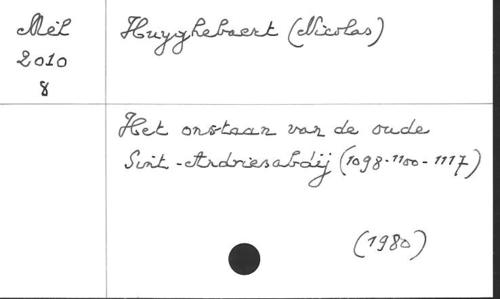 Mél
2010
8
Huyghebaert (Nicolas)
Het onstaan van de oude
Sint-Andriesabdij (1098-1100-1117)
(1980)